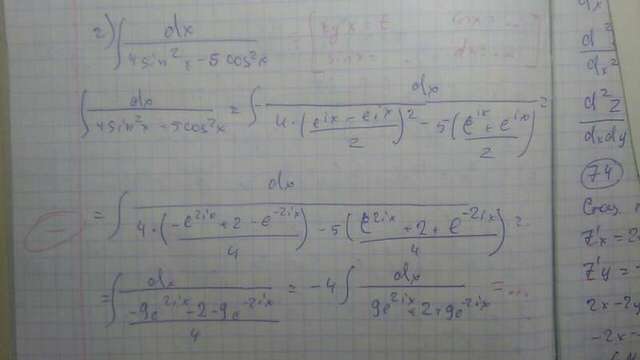 2) ∫ dx / (4sin²x - 5cos²x) [tg x = t cosx = ... sinx = ... dx = ...]
∫ dx / (4sin²x - 5cos²x) = ∫ dx / (4·((e^ix - e^ix)/2)² - 5((e^ix + e^ix)/2)²) =
= ∫ dx / (4·((-e^2ix + 2 - e^-2ix)/4) - 5((e^2ix + 2 + e^-2ix)/4)) =
= ∫ dx / ((-9e^2ix - 2 - 9e^-2ix)/4) = -4 ∫ dx / (9e^2ix + 2 + 9e^-2ix) = ...
dx
d²
dx²
d²z
dxdy
74
z'x = 2
z'y = -
2x - 2y
-2x -